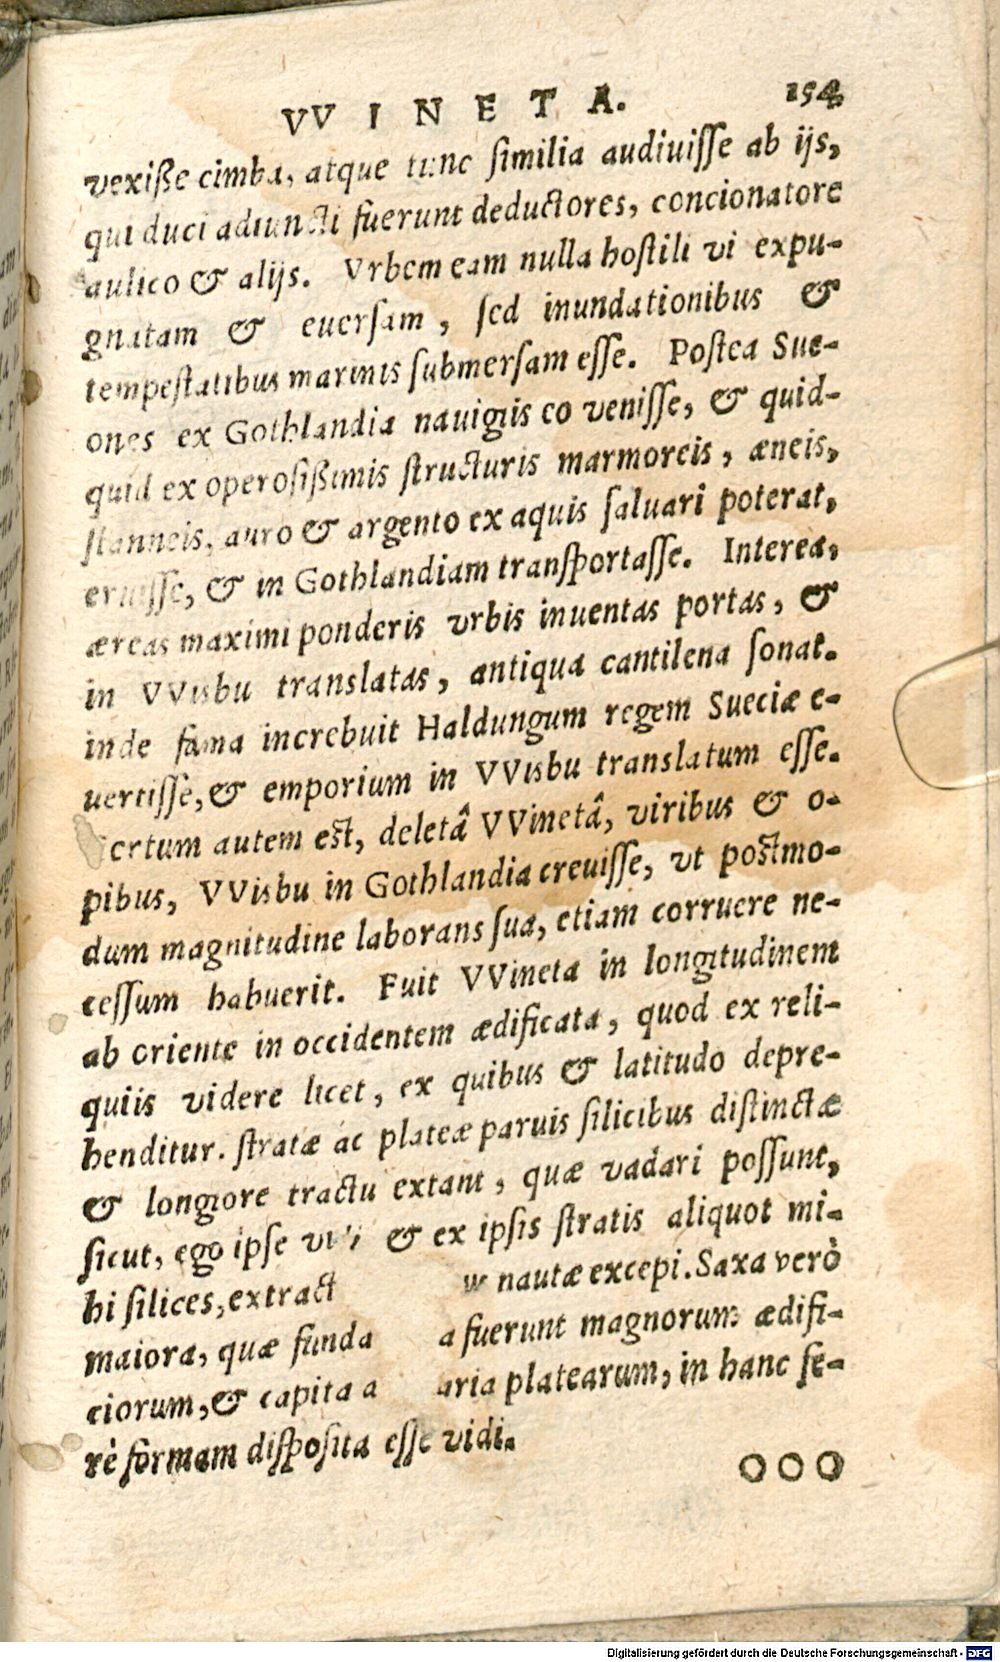 VVINETA. 154
vexiße cimba, atque tunc ſimilia audiuiſſe ab ijs,
qui duci adiuncti fuerunt deductores, concionatore
aulico & alijs. Vrbem eam nulla hoſtili vi expu-
gnatam & euerſam, ſed inundationibus &
tempeſtatibus marinis ſubmerſam eſſe. Poſtea Sue-
ones ex Gothlandia nauigiis eo veniſſe, & quid-
quid ex operoſißimis ſtructuris marmoreis, æneis,
ſtanneis, auro & argento ex aquis ſaluari poterat,
eruiſſe, & in Gothlandiam tranſportaſſe. Interea,
æreas maximi ponderis vrbis inuentas portas, &
in VVisbu translatas, antiqua cantilena ſonat.
inde fama increbuit Haldungum regem Sueciæ e-
uertiſſe, & emporium in VVisbu translatum eſſe.
ertum autem eſt, deletâ VVinetâ, viribus & o-
pibus, VVisbu in Gothlandia creuiſſe, vt poſtmo-
dum magnitudine laborans ſua, etiam corruere ne-
ceſſum habuerit. Fuit VVineta in longitudinem
ab oriente in occidentem ædificata, quod ex reli-
quiis videre licet, ex quibus & latitudo depre-
henditur. ſtratæ ac plateæ paruis ſilicibus diſtinctæ
& longiore tractu extant, quæ vadari poſſunt,
ſicut, ego ipſe & ex ipſis ſtratis aliquot mi-
hi ſilices, extract nautæ excepi. Saxa verò
maiora, quæ funda a fuerunt magnorum ædifi-
ciorum, & capita a aria platearum, in hanc fe-
rè formam diſpoſita eſſe vidi.
OOO
Digitalisierung gefördert durch die Deutsche Forschungsgemeinschaft - DFG